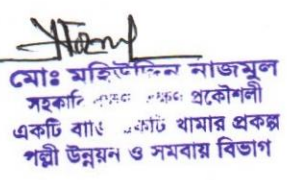 মোঃ মহিউদ্দিন নাজমুল
সহকারি প্রকৌশলী
একটি বাড়ি একটি খামার প্রকল্প
পল্লী উন্নয়ন ও সমবায় বিভাগ